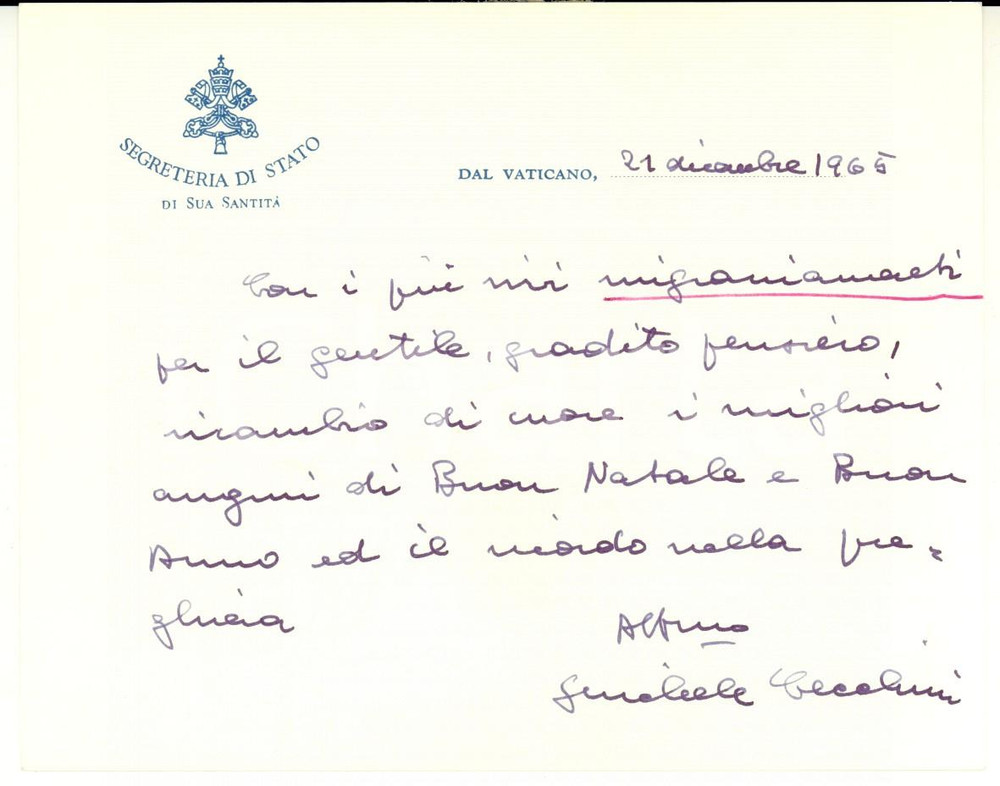 SEGRETERIA DI STATO
DI SUA SANTITÀ
DAL VATICANO, 21 dicembre 1965
Con i più vivi ringraziamenti
per il gentile, gradito pensiero,
ricambio di cuore i migliori
auguri di Buon Natale e Buon
Anno ed il ricordo nella pre-
ghiera
Aff.mo
Cecchini